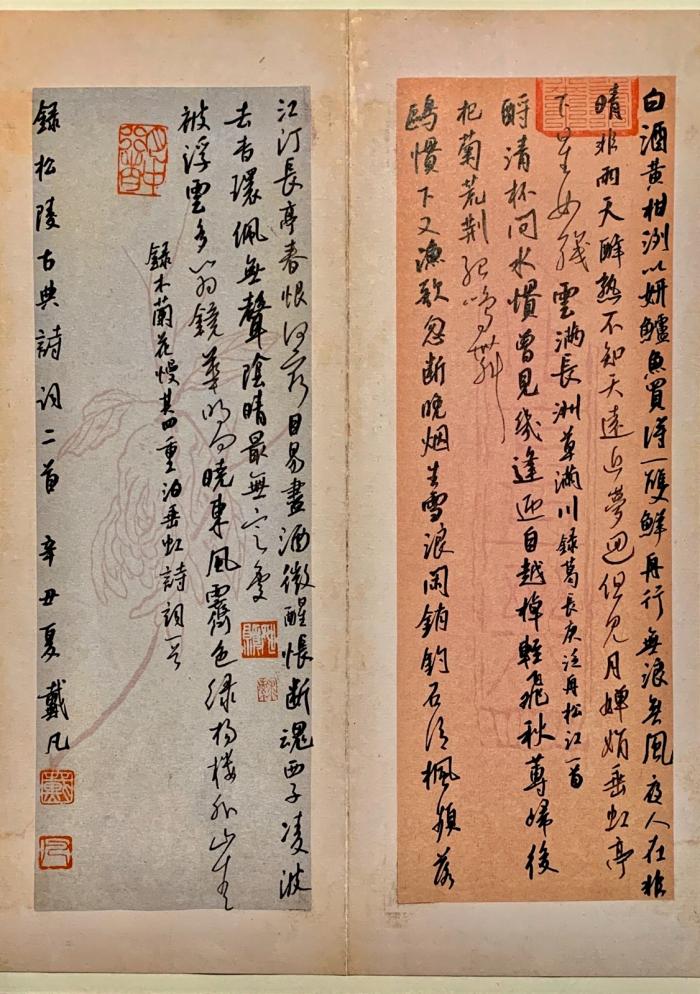 白酒黄柑洌以妍鱸魚買得一雙鮮舟行無浪無風夜人在非
晴非雨天醉熟不知天遠近夢回但見月嬋娟垂虹亭
下星如綫雲滿長洲草滿川 録葛長庚泛舟松江一首
酹清杯問水慣曾見幾逢迎自越棹輕飛秋蓴歸後
杞菊荒荆孤鳴舞
鷗慣下又漁歌忽断晚烟生雪浪閑銷釣石冷楓頻落
江汀長亭春恨何窮目易盡酒微醒悵断魂西子凌波
去杳環佩無聲陰晴最無定處
被浮雲多翳鏡華明向曉東風霽色绿楊樓外山青
録木蘭花慢其四重泊垂虹詩詞一首
録松陵古典詩詞二首 辛丑夏 戴凡